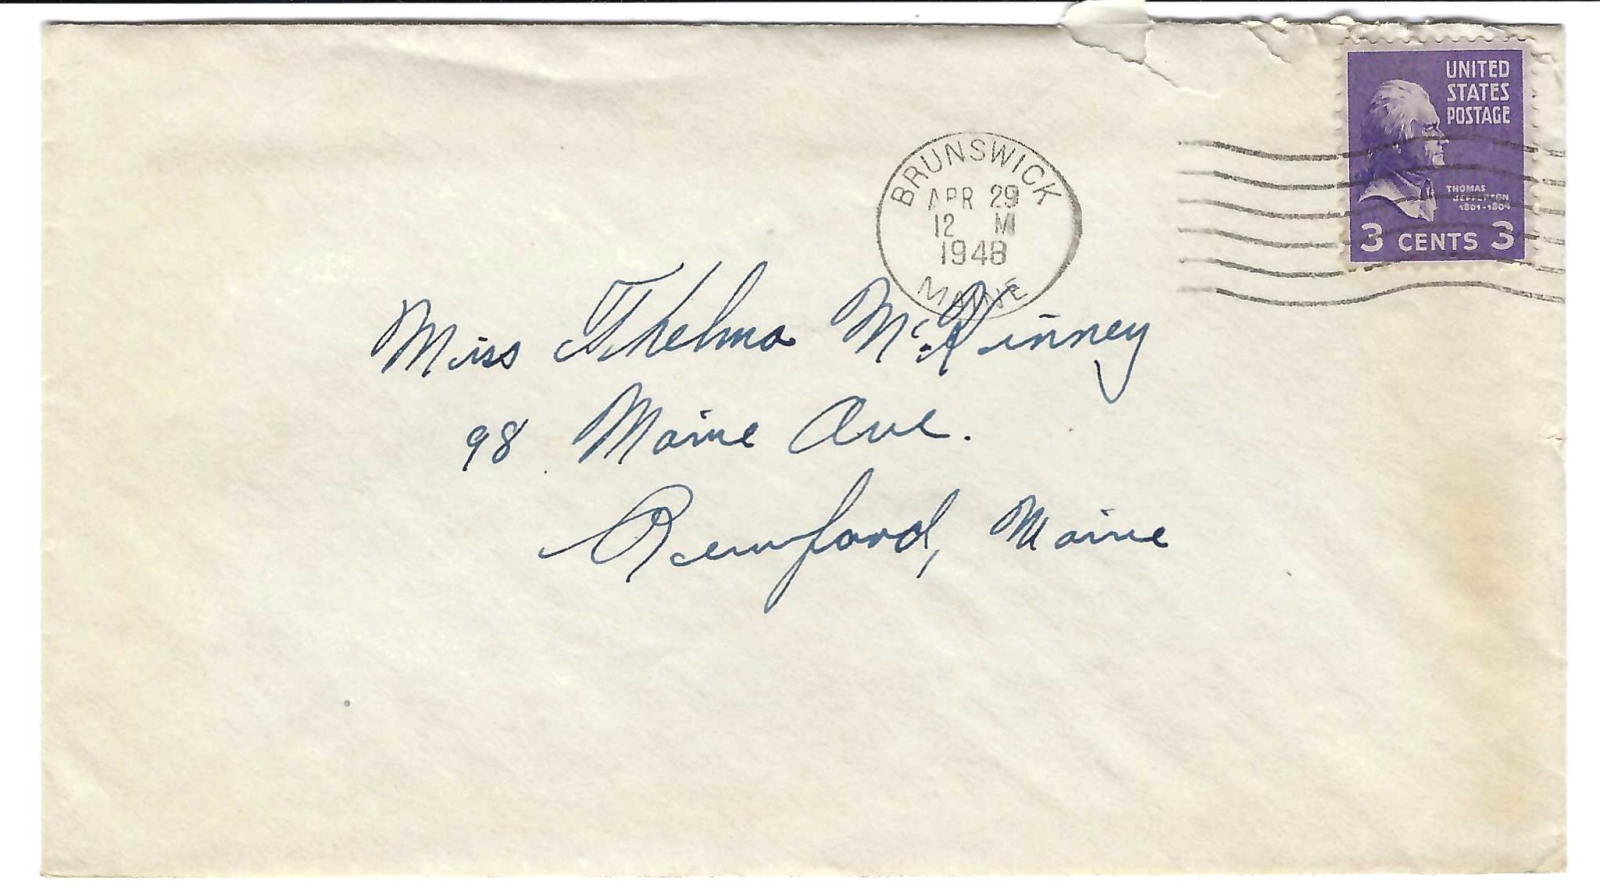 UNITED
STATES
POSTAGE
THOMAS
JEFFERSON
1801-1809
3 CENTS 3
BRUNSWICK
APR 29
12 M
1948
MAINE
Miss Thelma McKinney
98 Maine Ave.
Rumford, Maine